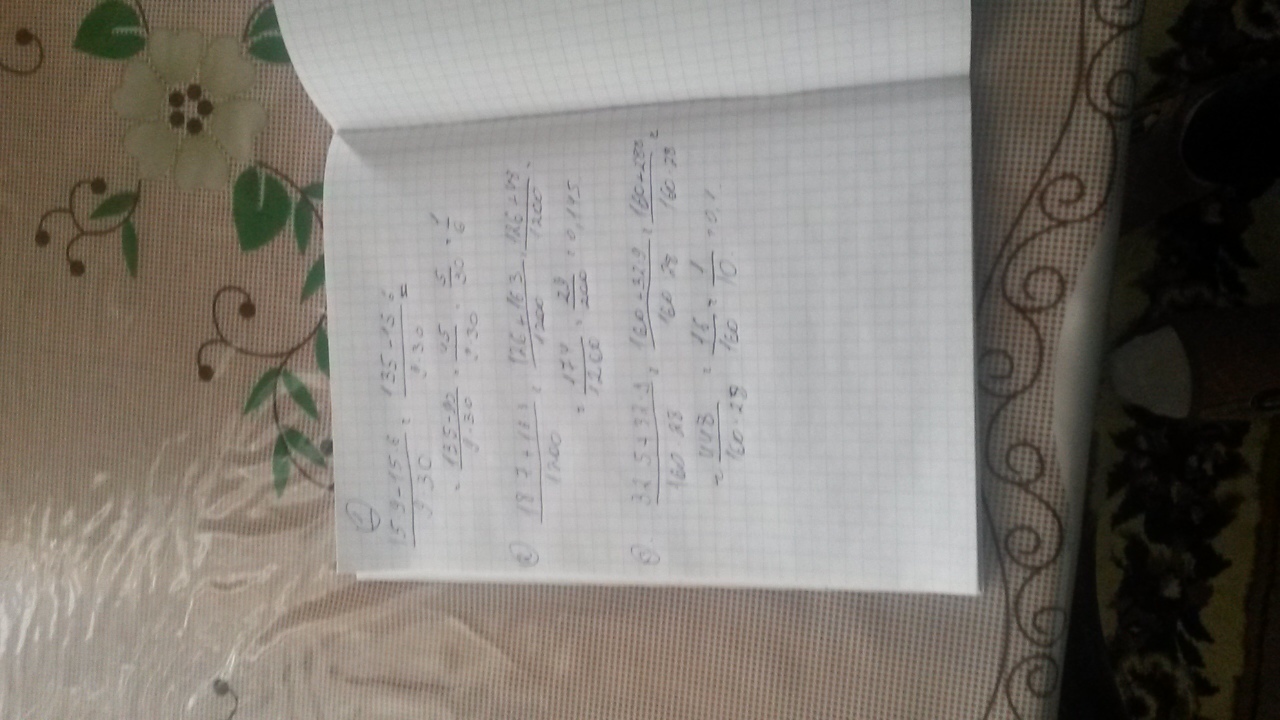 1)
15·9-15·6 / 9·30 = 135-15·6 / 9·30 =
= 135-90 / 9·30 = 45 / 9·30 = 5/30 = 1/6
2) 18·7+16·3 / 1200 = 126+16·3 / 1200 = 126+48 / 1200 =
= 174/1200 = 29/200 = 0,145
3) 32·5+32·9 / 160·28 = 160+32·9 / 160·28 = 160+288 / 160·28 =
= 448 / 160·28 = 16/160 = 1/10 = 0,1.